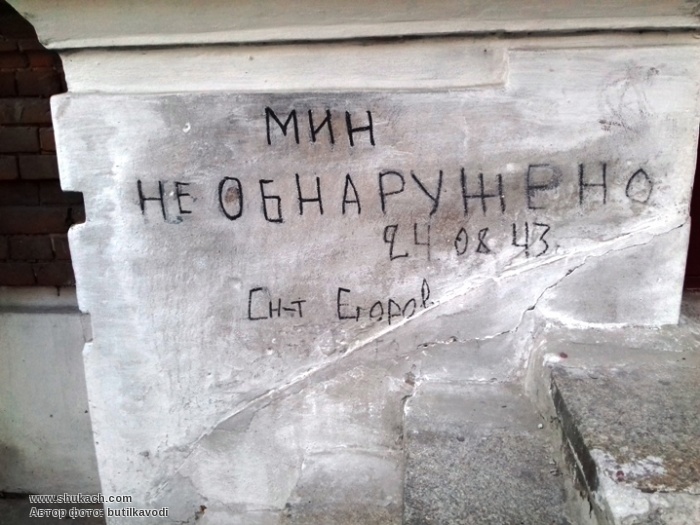 МИН
НЕ ОБНАРУЖЕНО
24 08 43.
Сн-т Егоров
www.shukach.com
Автор фото: butilkavodi